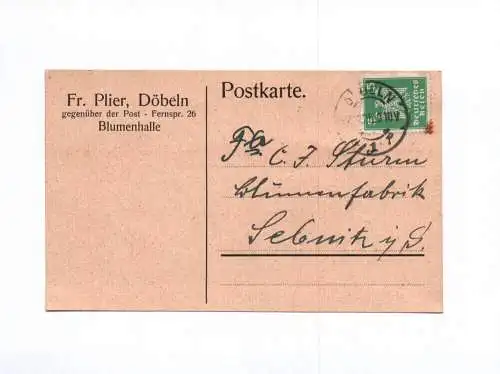 Fr. Plier, Döbeln
gegenüber der Post - Fernspr. 26
Blumenhalle
Postkarte.
Deutsches
Reich
Fa C. F. Sturm
Blumenfabrik
Sebnitz i/S.